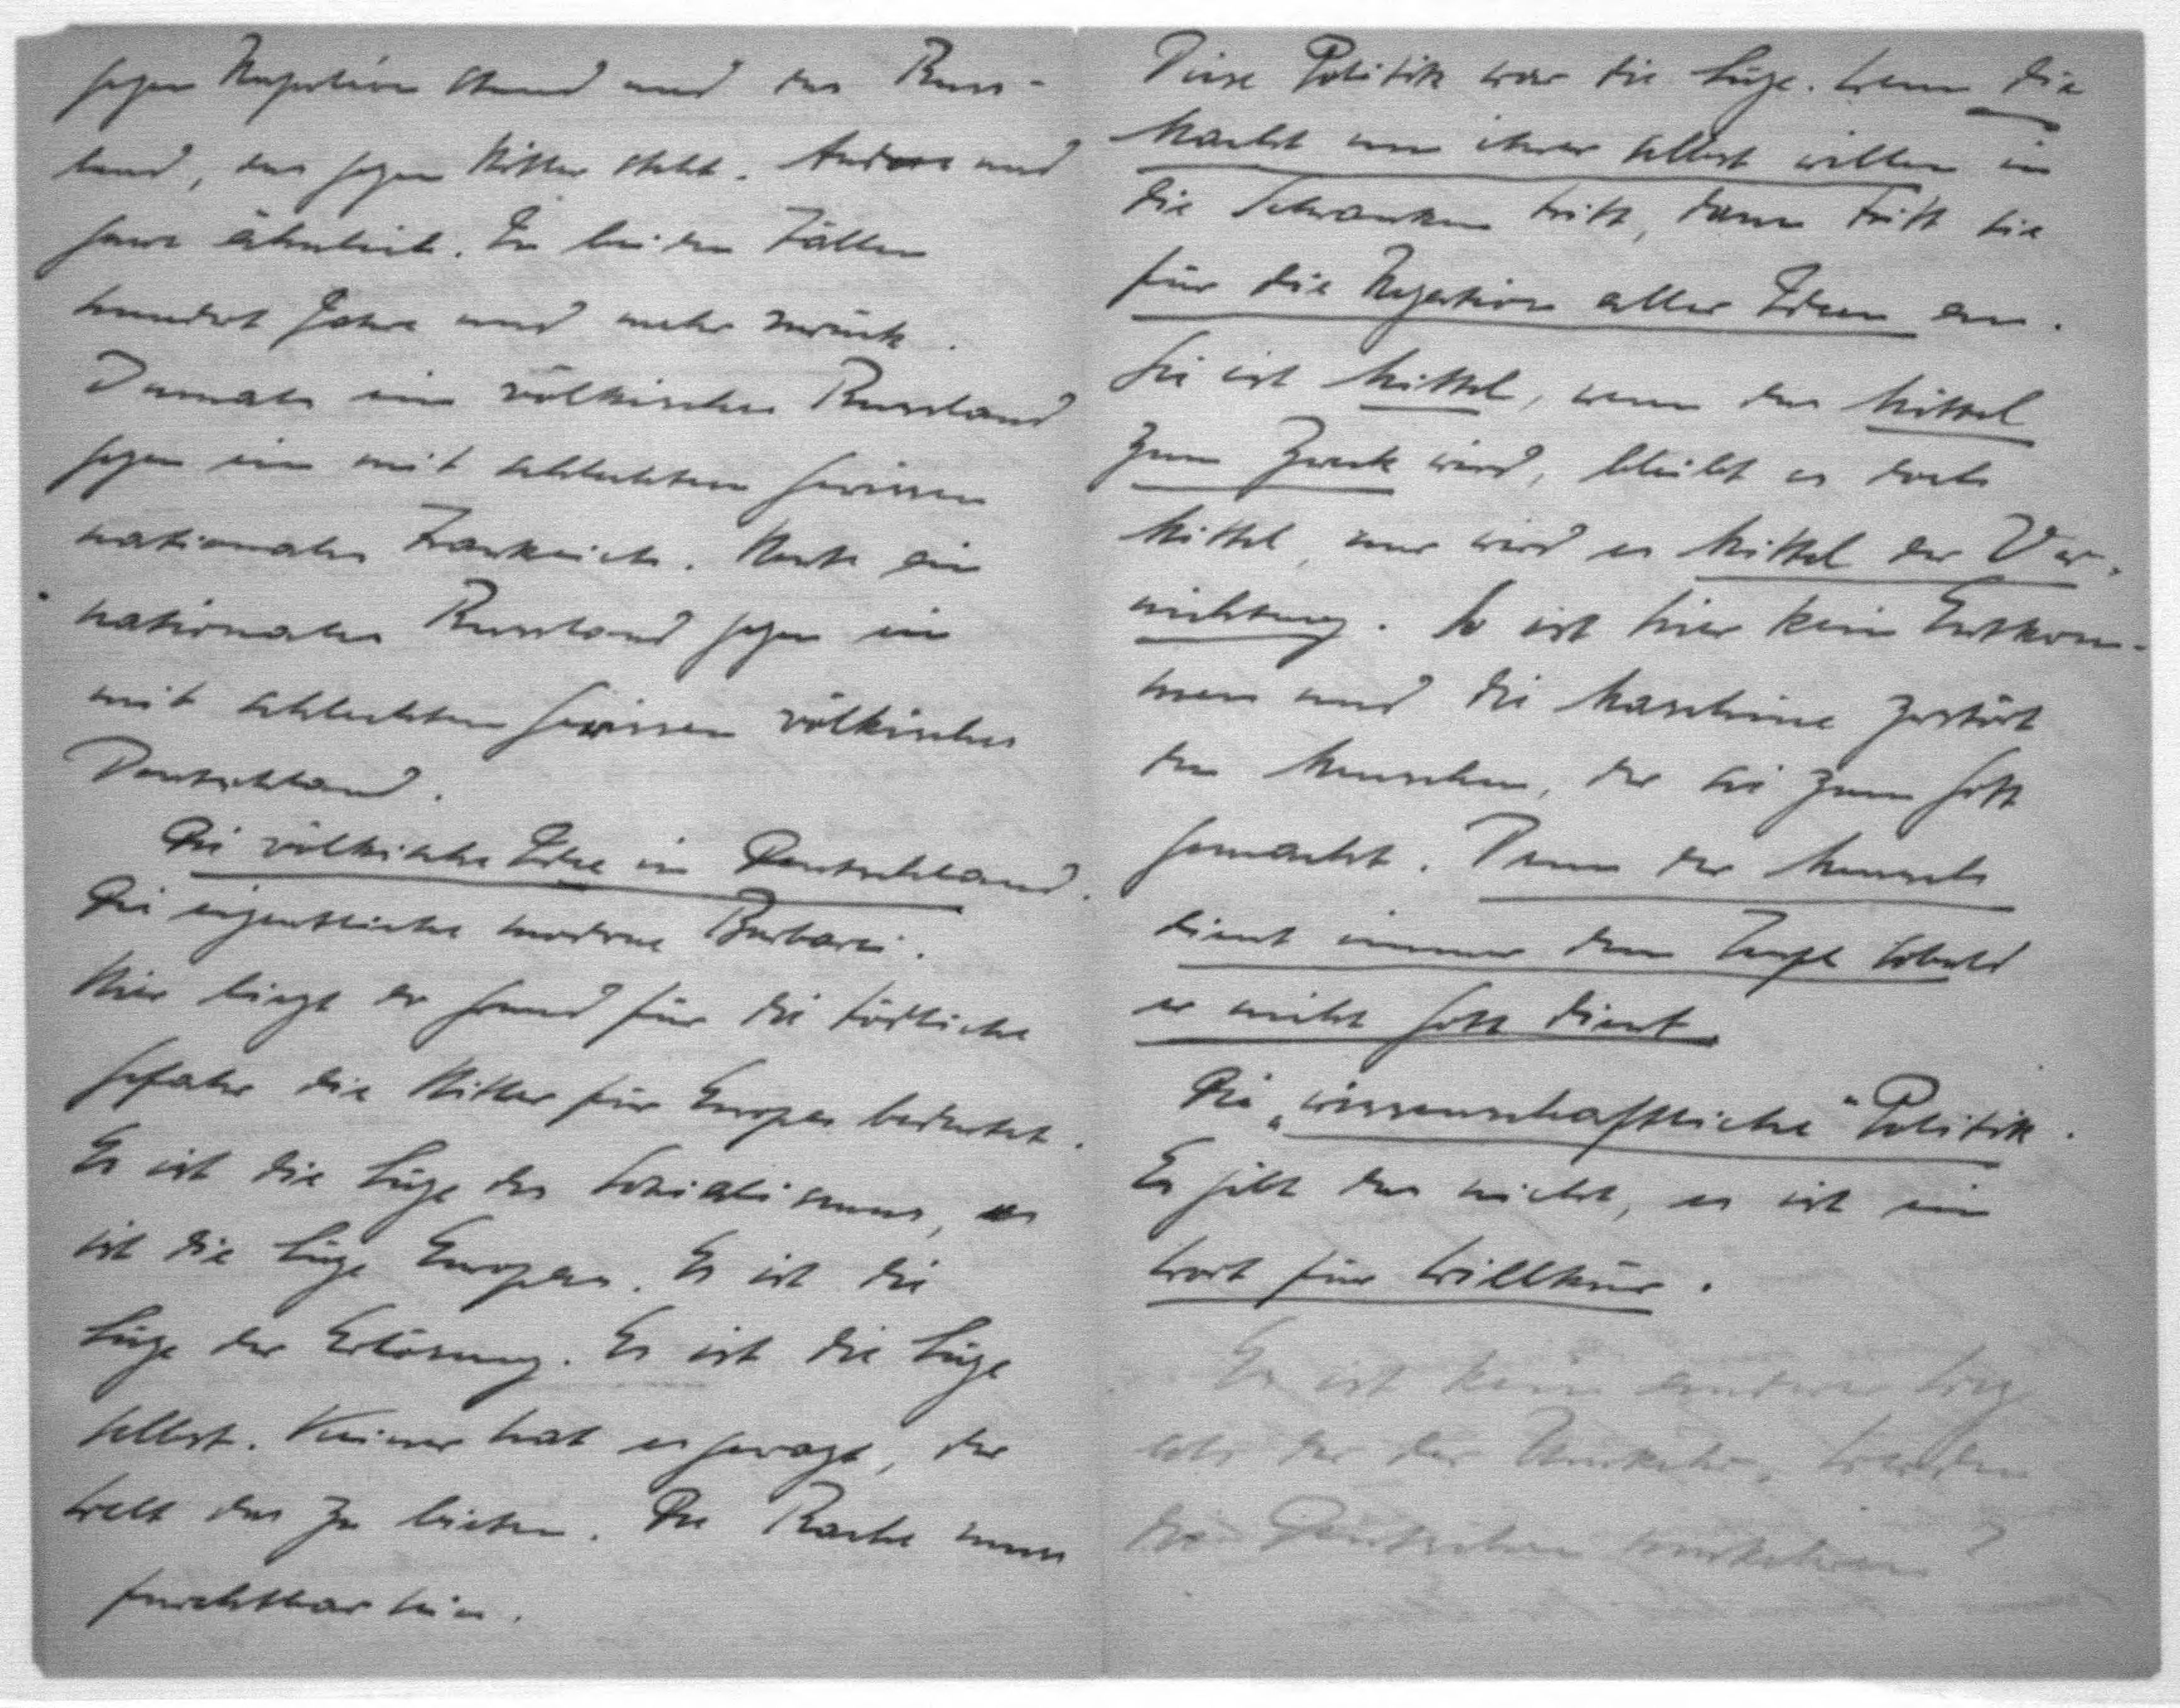 gegen Napoleon stand und das Russ-
land, das gegen Hitler steht. Anders und
ganz ähnlich. In beiden Fällen
hundert Jahre und mehr zurück.
Damals ein völkisches Russland
gegen ein mit schlechtem Gewissen
nationales Frankreich. Heute ein
nationales Russland gegen ein
mit schlechtem Gewissen völkisches
Deutschland.
Die völkische Idee in Deutschland.
Die eigentliche moderne Barbarei.
Hier liegt der Grund für die tödliche
Gefahr die Hitler für Europa bedeutet.
Es ist die Lüge des Sozialismus, es
ist die Lüge Europas. Es ist die
Lüge der Erlösung. Es ist die Lüge
selbst. Keiner hat es gewagt, der
Welt das zu bieten. Die Rache muss
furchtbar sein.
Diese Politik war die Lüge. Wenn die
Macht um ihrer selbst willen in
die Schranken tritt, dann tritt sie
für die Negation aller Ideen ein.
Sie ist Mittel, wenn das Mittel
zum Zweck wird, bleibt es doch
Mittel, nur wird es Mittel der Ver-
nichtung. So ist hier kein Entkom-
men und die Maschine zerstört
den Menschen, der sie zum Gott
gemacht. Denn der Mensch
dient immer dem Teufel sobald
er nicht Gott dient.
Die „wissenschaftliche“ Politik.
Es gibt das nicht, es ist ein
Wort für Willkür.
Es ist kein anderer Weg
als der der Umkehr. Werden
die Deutschen umkehren?